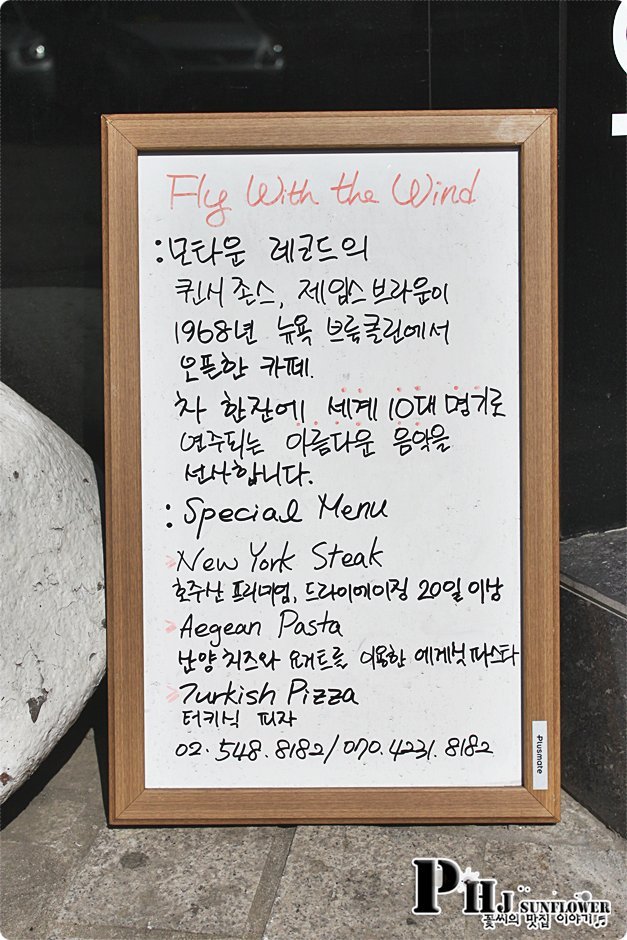 Fly With the Wind
:모타운 레코드의
퀸시 존스, 제임스 브라운이
1968년 뉴욕 브룩클린에서
오픈한 카페.
차 한잔에 세계 10대 명기로
연주되는 아름다운 음악을
선사합니다.
: Special Menu
New York Steak
호주산 프리미엄, 드라이에이징 20일 이상
Aegean Pasta
산양 치즈와 요거트를 이용한 에게넛 파스타
Turkish Pizza
터키식 피자
02. 548. 8182 / 070. 4231. 8182
Plusmate
PHJ SUNFLOWER
꽃씨의 맛집 이야기